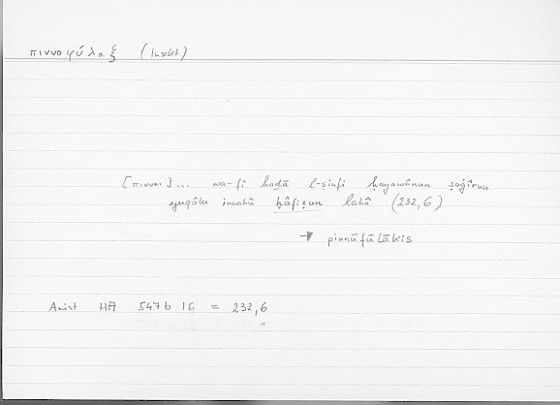 πιννοφύλαξ (Insekt)
[πίνναι]... wa-fī haḏā l-ṣinfi ḥayawānun ṣaġīrun
yuqālu innahū ḥāfiẓun lahā (232,6)
→ pinnūfūlākis
Arist HA 547b 16 = 232,6